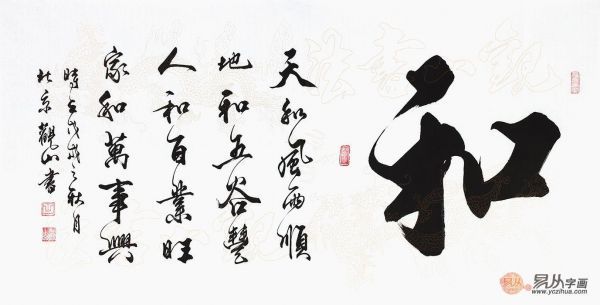 和
天和風雨順
地和五谷豐
人和百業旺
家和萬事興
時在戊戌之秋月
北京觀山書
觀山書法
易从字画
www.yczihua.com